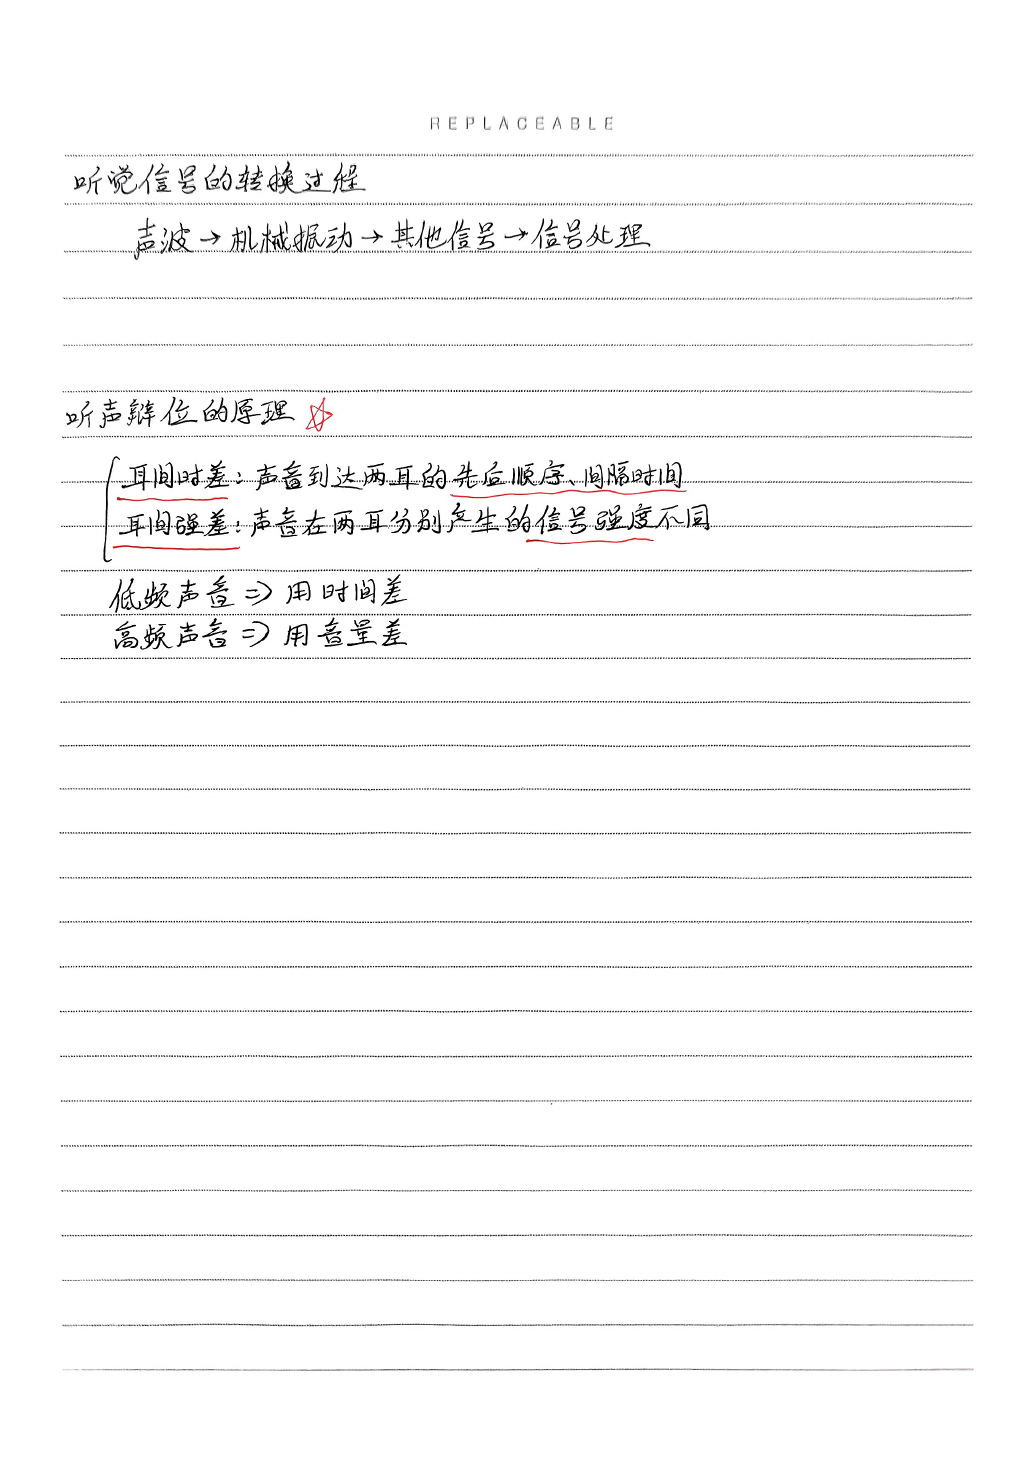 REPLACEABLE
听觉信号的转换过程
声波→机械振动→其他信号→信号处理
听声辩位的原理
耳间时差：声音到达两耳的先后顺序、间隔时间
耳间强差：声音在两耳分别产生的信号强度不同
低频声音⇒用时间差
高频声音⇒用音量差